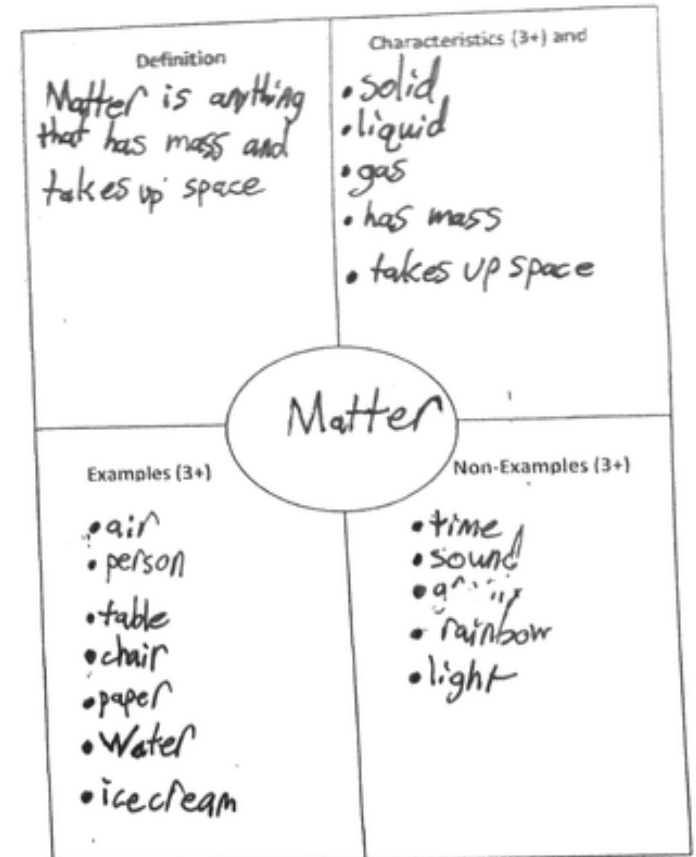 Definition
Matter is anything
that has mass and
takes up space
Characteristics (3+) and
• solid
• liquid
• gas
• has mass
• takes up space
Matter
Examples (3+)
• air
• person
• table
• chair
• paper
• Water
• icecream
Non-Examples (3+)
• time
• sound
•
• rainbow
• light